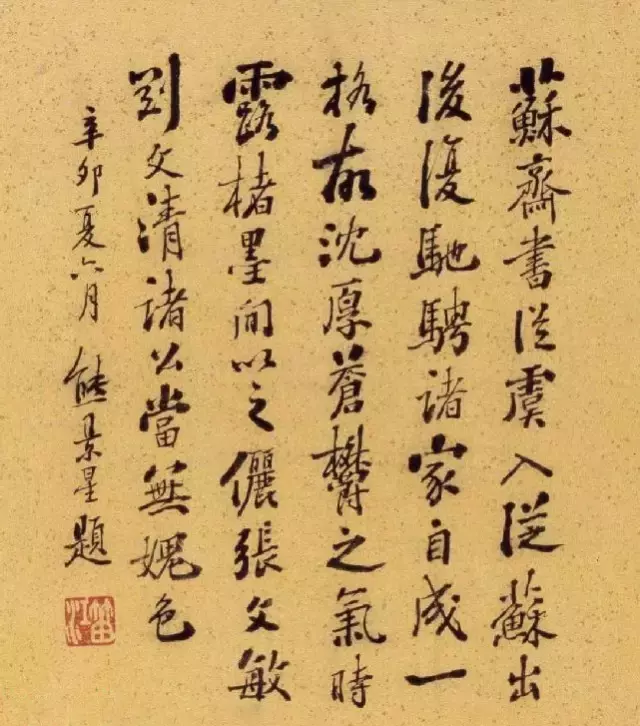 蘇齋書從虞入從蘇出
後復馳騁諸家自成一
格故沈厚蒼鬱之氣時
露楮墨間以之儷張文敏
劉文清諸公當無媿色
辛卯夏六月 熊景星題
笛江